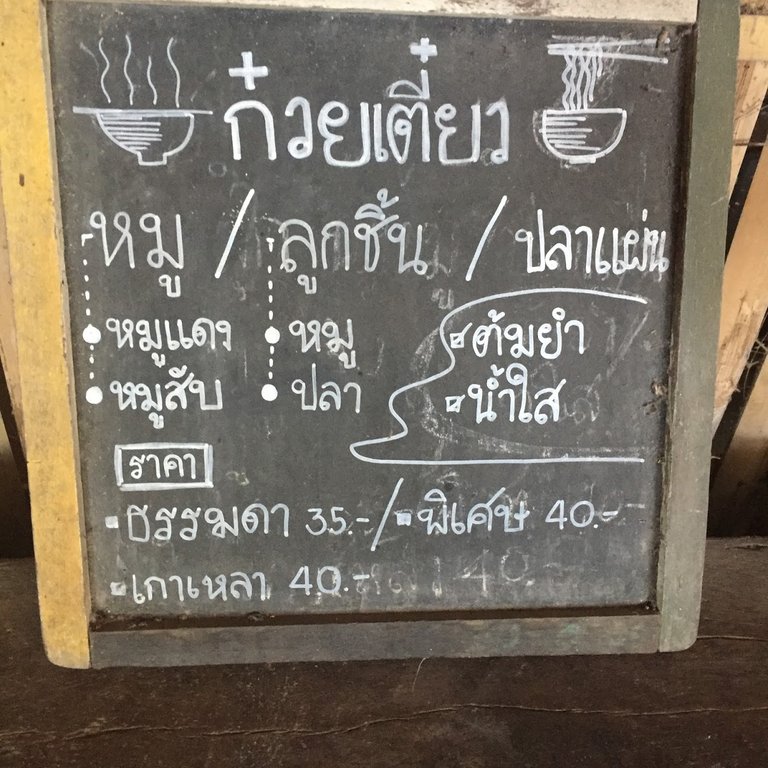 ก๋วยเตี๋ยว
หมู / ลูกชิ้น / ปลาแผ่น
หมูแดง
หมูสับ
หมู
ปลา
ต้มยำ
น้ำใส
ราคา
ธรรมดา 35.-/ พิเศษ 40.-
เกาเหลา 40.-